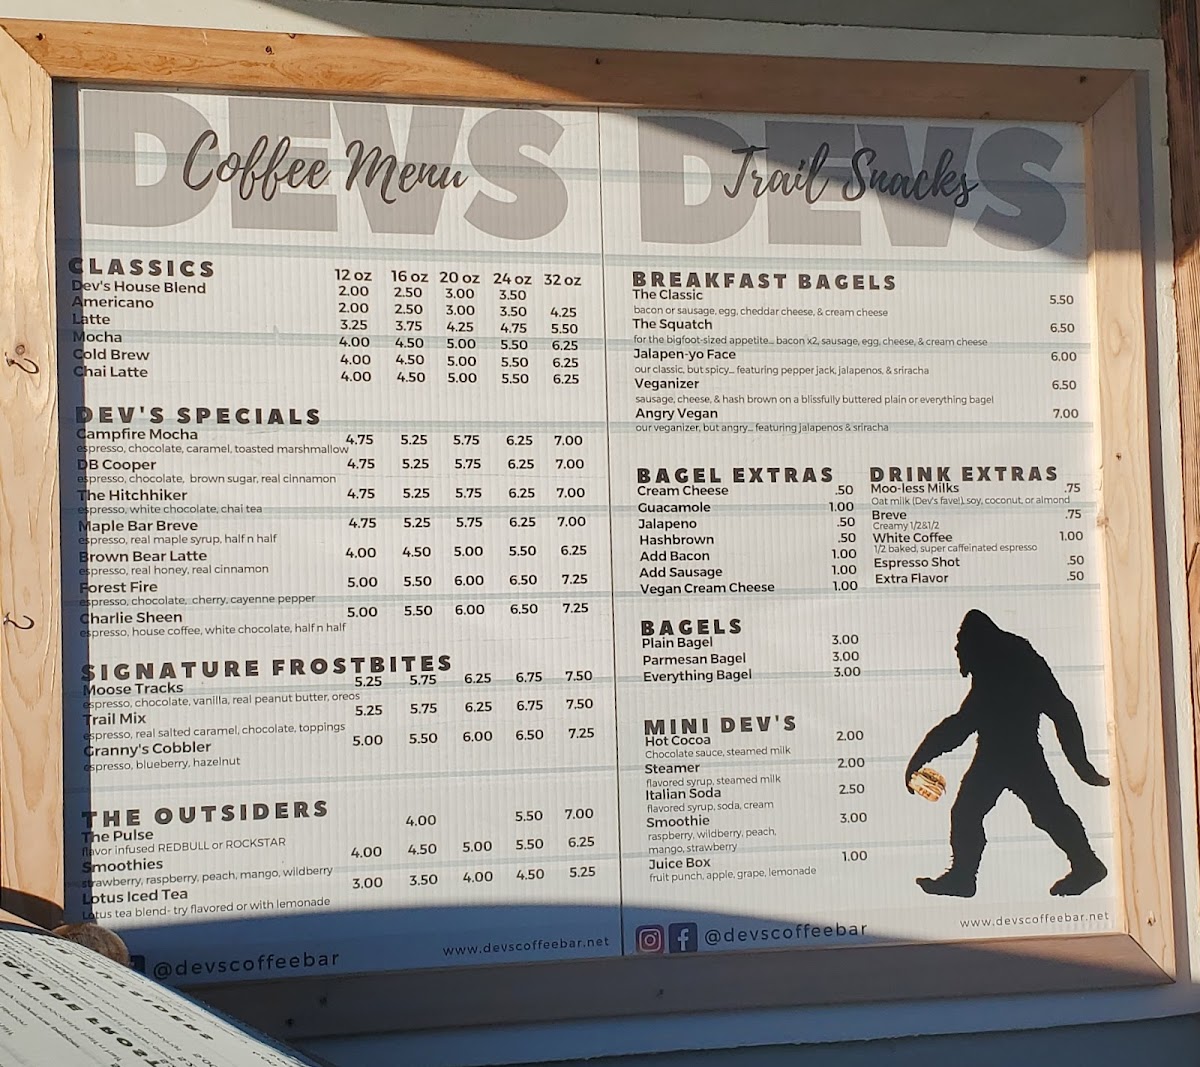 DEVS
Coffee Menu
CLASSICS 12 oz 16 oz 20 oz 24 oz 32 oz
Dev's House Blend 2.00 2.50 3.00 3.50
Americano 2.00 2.50 3.00 3.50 4.25
Latte 3.25 3.75 4.25 4.75 5.50
Mocha 4.00 4.50 5.00 5.50 6.25
Cold Brew 4.00 4.50 5.00 5.50 6.25
Chai Latte 4.00 4.50 5.00 5.50 6.25
DEV'S SPECIALS
Campfire Mocha 4.75 5.25 5.75 6.25 7.00
espresso, chocolate, caramel, toasted marshmallow
DB Cooper 4.75 5.25 5.75 6.25 7.00
espresso, chocolate, brown sugar, real cinnamon
The Hitchhiker 4.75 5.25 5.75 6.25 7.00
espresso, white chocolate, chai tea
Maple Bar Breve 4.75 5.25 5.75 6.25 7.00
espresso, real maple syrup, half n half
Brown Bear Latte 4.00 4.50 5.00 5.50 6.25
espresso, real honey, real cinnamon
Forest Fire 5.00 5.50 6.00 6.50 7.25
espresso, chocolate, cherry, cayenne pepper
Charlie Sheen 5.00 5.50 6.00 6.50 7.25
espresso, house coffee, white chocolate, half n half
SIGNATURE FROSTBITES
Moose Tracks 5.25 5.75 6.25 6.75 7.50
espresso, chocolate, vanilla, real peanut butter, oreos
Trail Mix 5.25 5.75 6.25 6.75 7.50
espresso, real salted caramel, chocolate, toppings
Granny's Cobbler 5.00 5.50 6.00 6.50 7.25
espresso, blueberry, hazelnut
THE OUTSIDERS
The Pulse 4.00 5.50 7.00
flavor infused REDBULL or ROCKSTAR
Smoothies 4.00 4.50 5.00 5.50 6.25
strawberry, raspberry, peach, mango, wildberry
Lotus Iced Tea 3.00 3.50 4.00 4.50 5.25
Lotus tea blend- try flavored or with lemonade
@devscoffeebar www.devscoffeebar.net
DEVS
Trail Snacks
BREAKFAST BAGELS
The Classic 5.50
bacon or sausage, egg, cheddar cheese, & cream cheese
The Squatch 6.50
for the bigfoot-sized appetite... bacon x2, sausage, egg, cheese, & cream cheese
Jalapen-yo Face 6.00
our classic, but spicy... featuring pepper jack, jalapenos, & sriracha
Veganizer 6.50
sausage, cheese, & hash brown on a blissfully buttered plain or everything bagel
Angry Vegan 7.00
our veganizer, but angry... featuring jalapenos & sriracha
BAGEL EXTRAS
Cream Cheese .50
Guacamole 1.00
Jalapeno .50
Hashbrown .50
Add Bacon 1.00
Add Sausage 1.00
Vegan Cream Cheese 1.00
DRINK EXTRAS
Moo-less Milks .75
Oat milk (Dev's fave!), soy, coconut, or almond
Breve .75
Creamy 1/2&1/2
White Coffee 1.00
1/2 baked, super caffeinated espresso
Espresso Shot .50
Extra Flavor .50
BAGELS
Plain Bagel 3.00
Parmesan Bagel 3.00
Everything Bagel 3.00
MINI DEV'S
Hot Cocoa 2.00
Chocolate sauce, steamed milk
Steamer 2.00
flavored syrup, steamed milk
Italian Soda 2.50
flavored syrup, soda, cream
Smoothie 3.00
raspberry, wildberry, peach,
mango, strawberry
Juice Box 1.00
fruit punch, apple, grape, lemonade
@devscoffeebar www.devscoffeebar.net